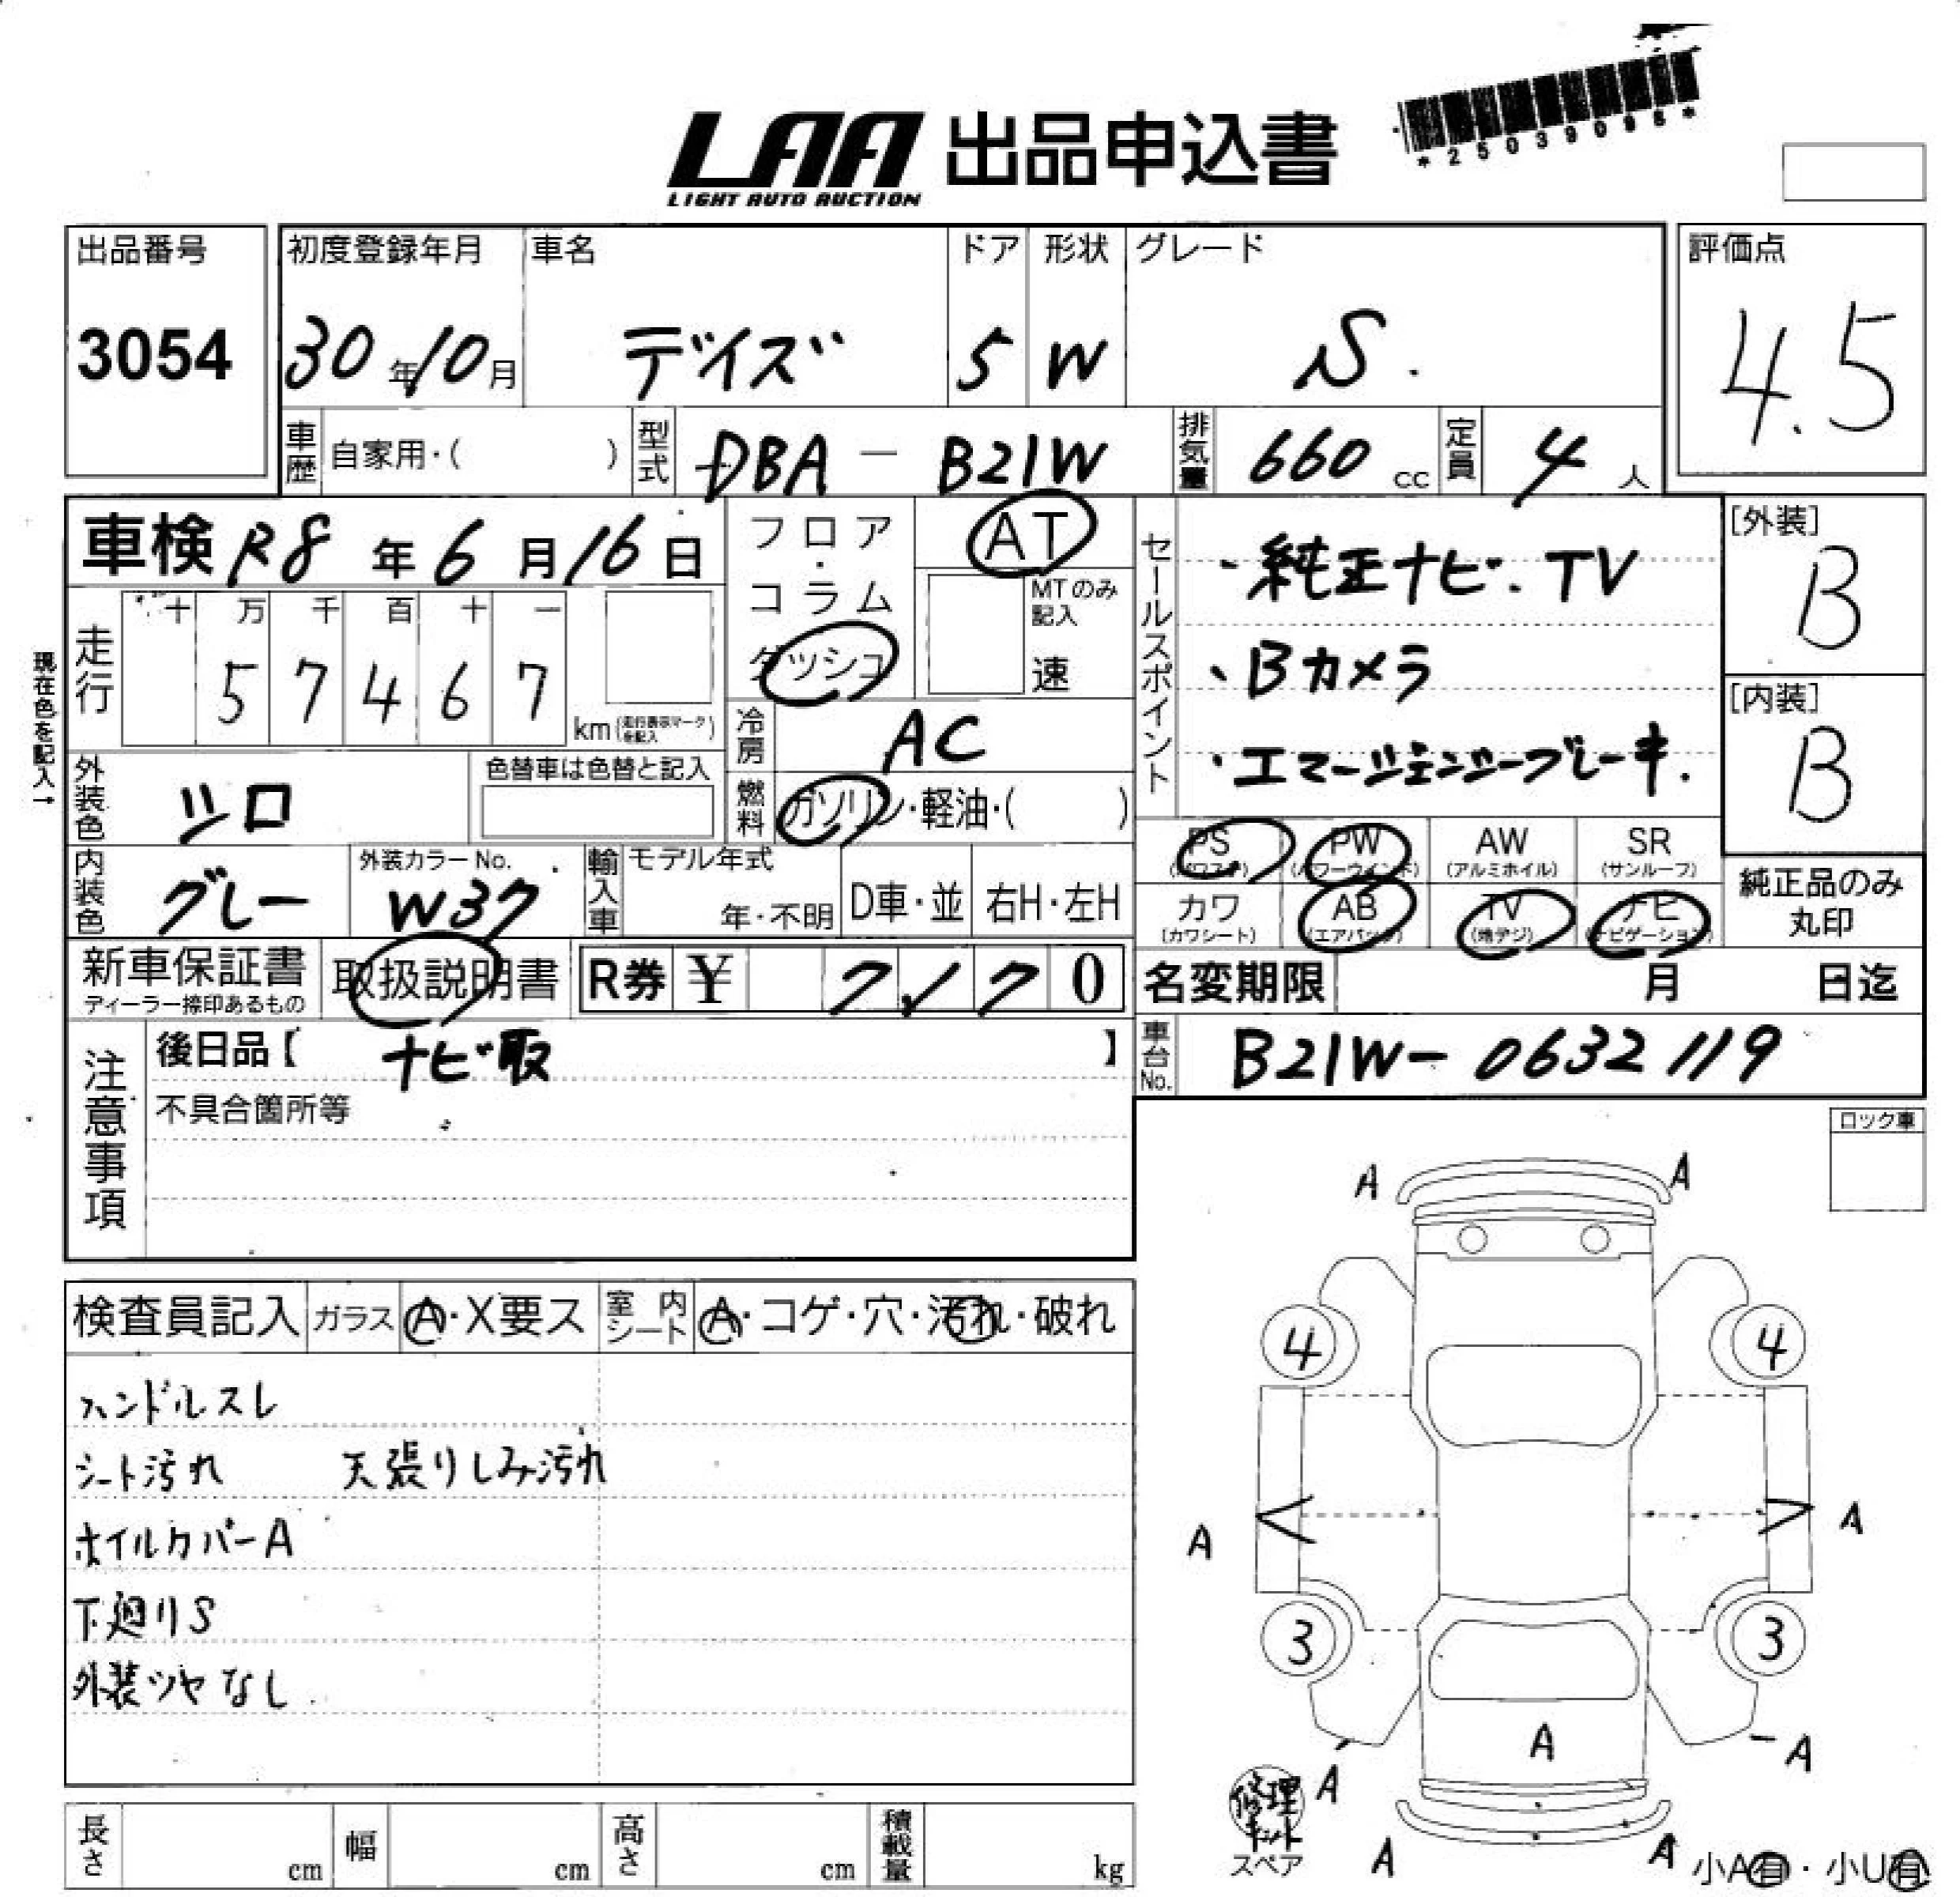 LAA 出品申込書
LIGHT AUTO AUCTION
*25039098*
出品番号 初度登録年月 車名 ドア 形状 グレード 評価点
3054 30年10月 デイズ 5 W S. 4.5
車歴 自家用・( ) 型式 DBA - B21W 排気量 660 cc 定員 4 人
車検 R8年6月16日 フロア・コラム ダッシュ AT
MTのみ記入 速
セールスポイント
・純正ナビ.TV
、Bカメラ
・エマージェンジーブレーキ.
[外装]
B
[内装]
B
現在色を記入→
走行 十 万 千 百 十 一
5 7 4 6 7 km (走行表示マークを記入)
冷房 AC
外装色 シロ 色替車は色替と記入
燃料 ガソリン・軽油・( )
PS (パワステ) PW (パワーウインド) AW (アルミホイル) SR (サンルーフ)
カワ (カワシート) AB (エアバッグ) TV (地デジ) ナビ (ナビゲーション)
純正品のみ丸印
内装色 グレー 外装カラーNo. W37 輸入車 モデル年式 年・不明 D車・並 右H・左H
新車保証書 ディーラー捺印あるもの 取扱説明書 R券 ¥ 7,170
名変期限 月 日迄
車台No. B21W-0632119
注意事項
後日品【 ナビ取 】
不具合箇所等
ロック車
検査員記入 ガラス A・X要ス 室内シート A・コゲ・穴・汚れ・破れ
ハンドルスレ
シート汚れ 天張りしみ汚れ
ホイルカバーA
下廻りS
外装ツヤなし
A A
4 4
A < > A
3 3
A A A
修理キット
スペア
A A
小A有・小U有
長さ cm 幅 cm 高さ cm 積載量 kg